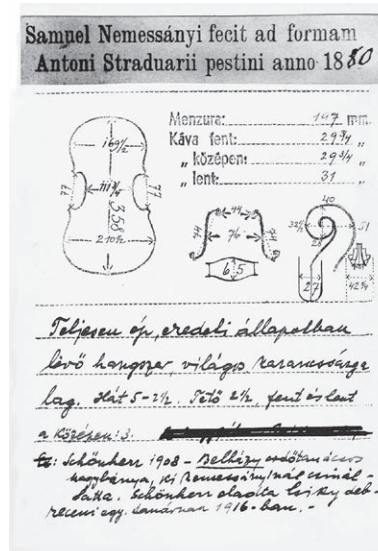 Samuel Nemessányi fecit ad formam
Antoni Straduarii pestini anno 1880
Menzura: 197 mm.
Káva fent: 29 3/4 „
„ középen: 29 3/4 „
„ lent: 31 „
169 1/2
77 111 3/4 77
358
210 1/2
44
74 76 74
6 5
40
33 1/2 51
28
27 42 3/4
Teljesen ép, eredeti állapotban
lévő hangszer, világos narancssárga
lag. Hát 5-2 1/2. Tető 2 1/2, fent és lent
a középen: 3.
Schönherr 1908 - Belházy erdőtanácsos
nagybánya, ki Nemessányinál csinál-
tatta. Schönherr eladta Csiky deb-
receni egy. tanárnak 1916-ban. -